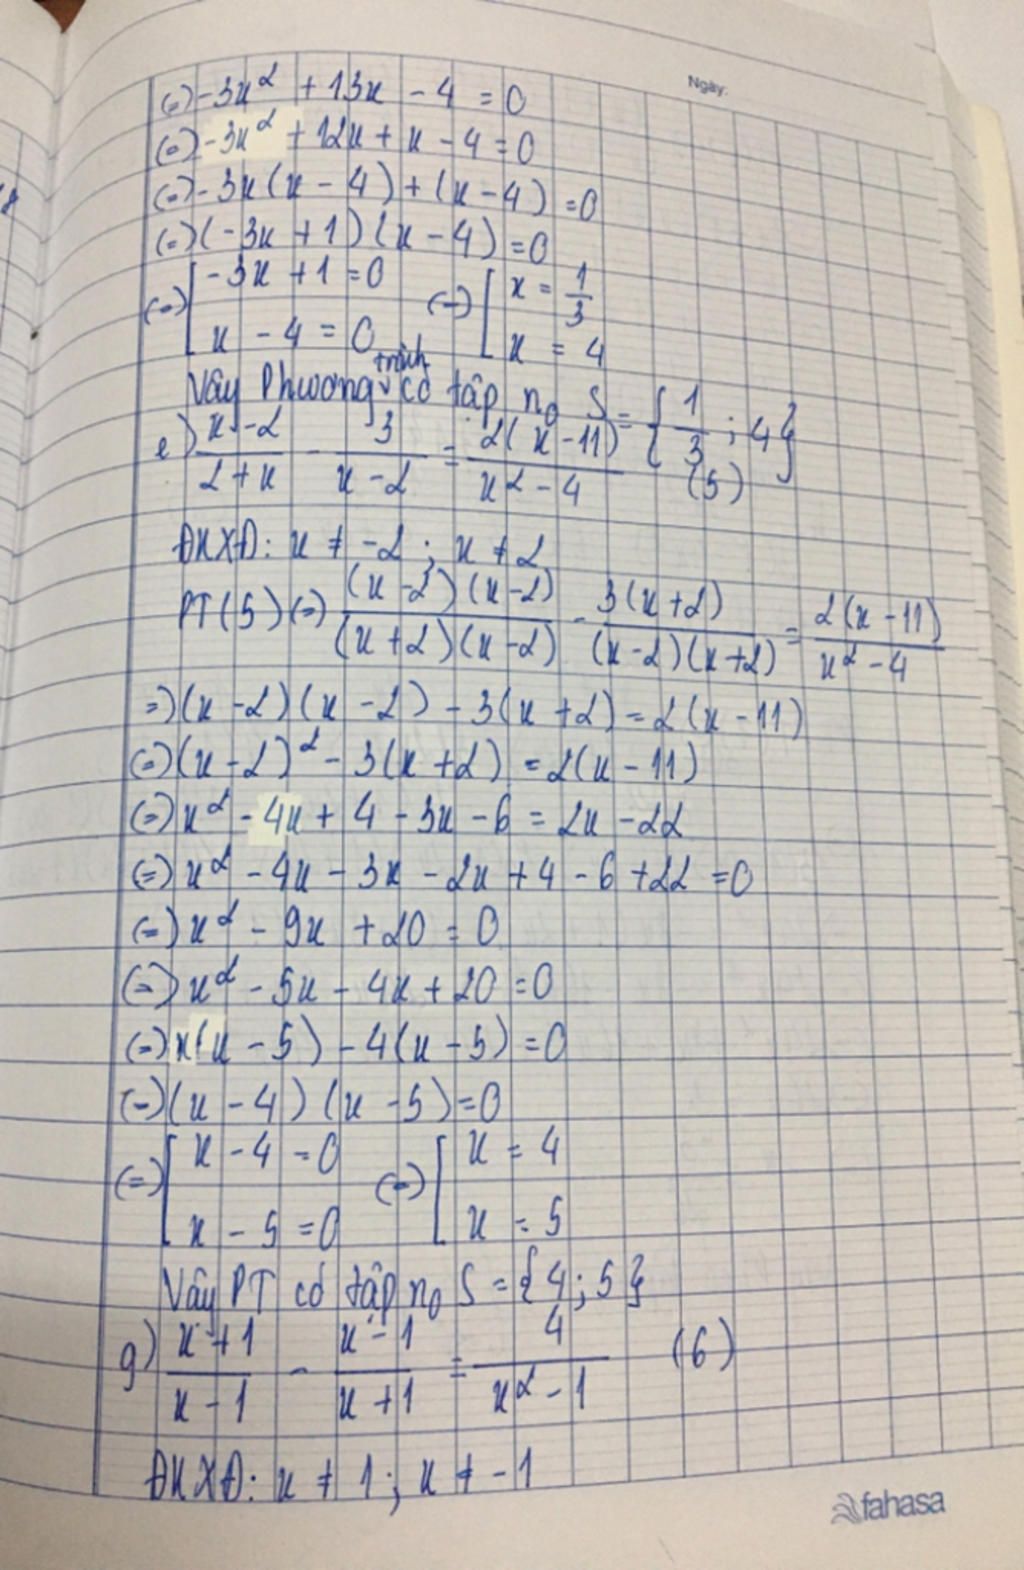 Ngày:
(=) -3x² + 13x - 4 = 0
(=) -3x² + 12x + x - 4 = 0
(=) -3x(x - 4) + (x - 4) = 0
(=) (-3x + 1)(x - 4) = 0
(=) [ -3x + 1 = 0 (=) [ x = 1/3
x - 4 = 0 x = 4
Vây Phương trình có tâp n₀ S = { 1/3 ; 4 }
e) (x - 2)/(2 + x) - 3/(x - 2) = 2(x - 11)/(x² - 4) (5)
ĐKXĐ: x ≠ -2 ; x ≠ 2
PT(5) (=) (x - 2)(x - 2)/(x + 2)(x - 2) - 3(x + 2)/(x - 2)(x + 2) = 2(x - 11)/(x² - 4)
=) (x - 2)(x - 2) - 3(x + 2) = 2(x - 11)
(=) (x - 2)² - 3(x + 2) = 2(x - 11)
(=) x² - 4x + 4 - 3x - 6 = 2x - 22
(=) x² - 4x - 3x - 2x + 4 - 6 + 22 = 0
(=) x² - 9x + 20 = 0
(=) x² - 5x - 4x + 20 = 0
(=) x(x - 5) - 4(x - 5) = 0
(=) (x - 4)(x - 5) = 0
(=) [ x - 4 = 0 (=) [ x = 4
x - 5 = 0 x = 5
Vây PT có tâp n₀ S = {4; 5}
g) (x + 1)/(x - 1) - (x - 1)/(x + 1) = 4/(x² - 1) (6)
ĐKXĐ: x ≠ 1 ; x ≠ -1
fahasa